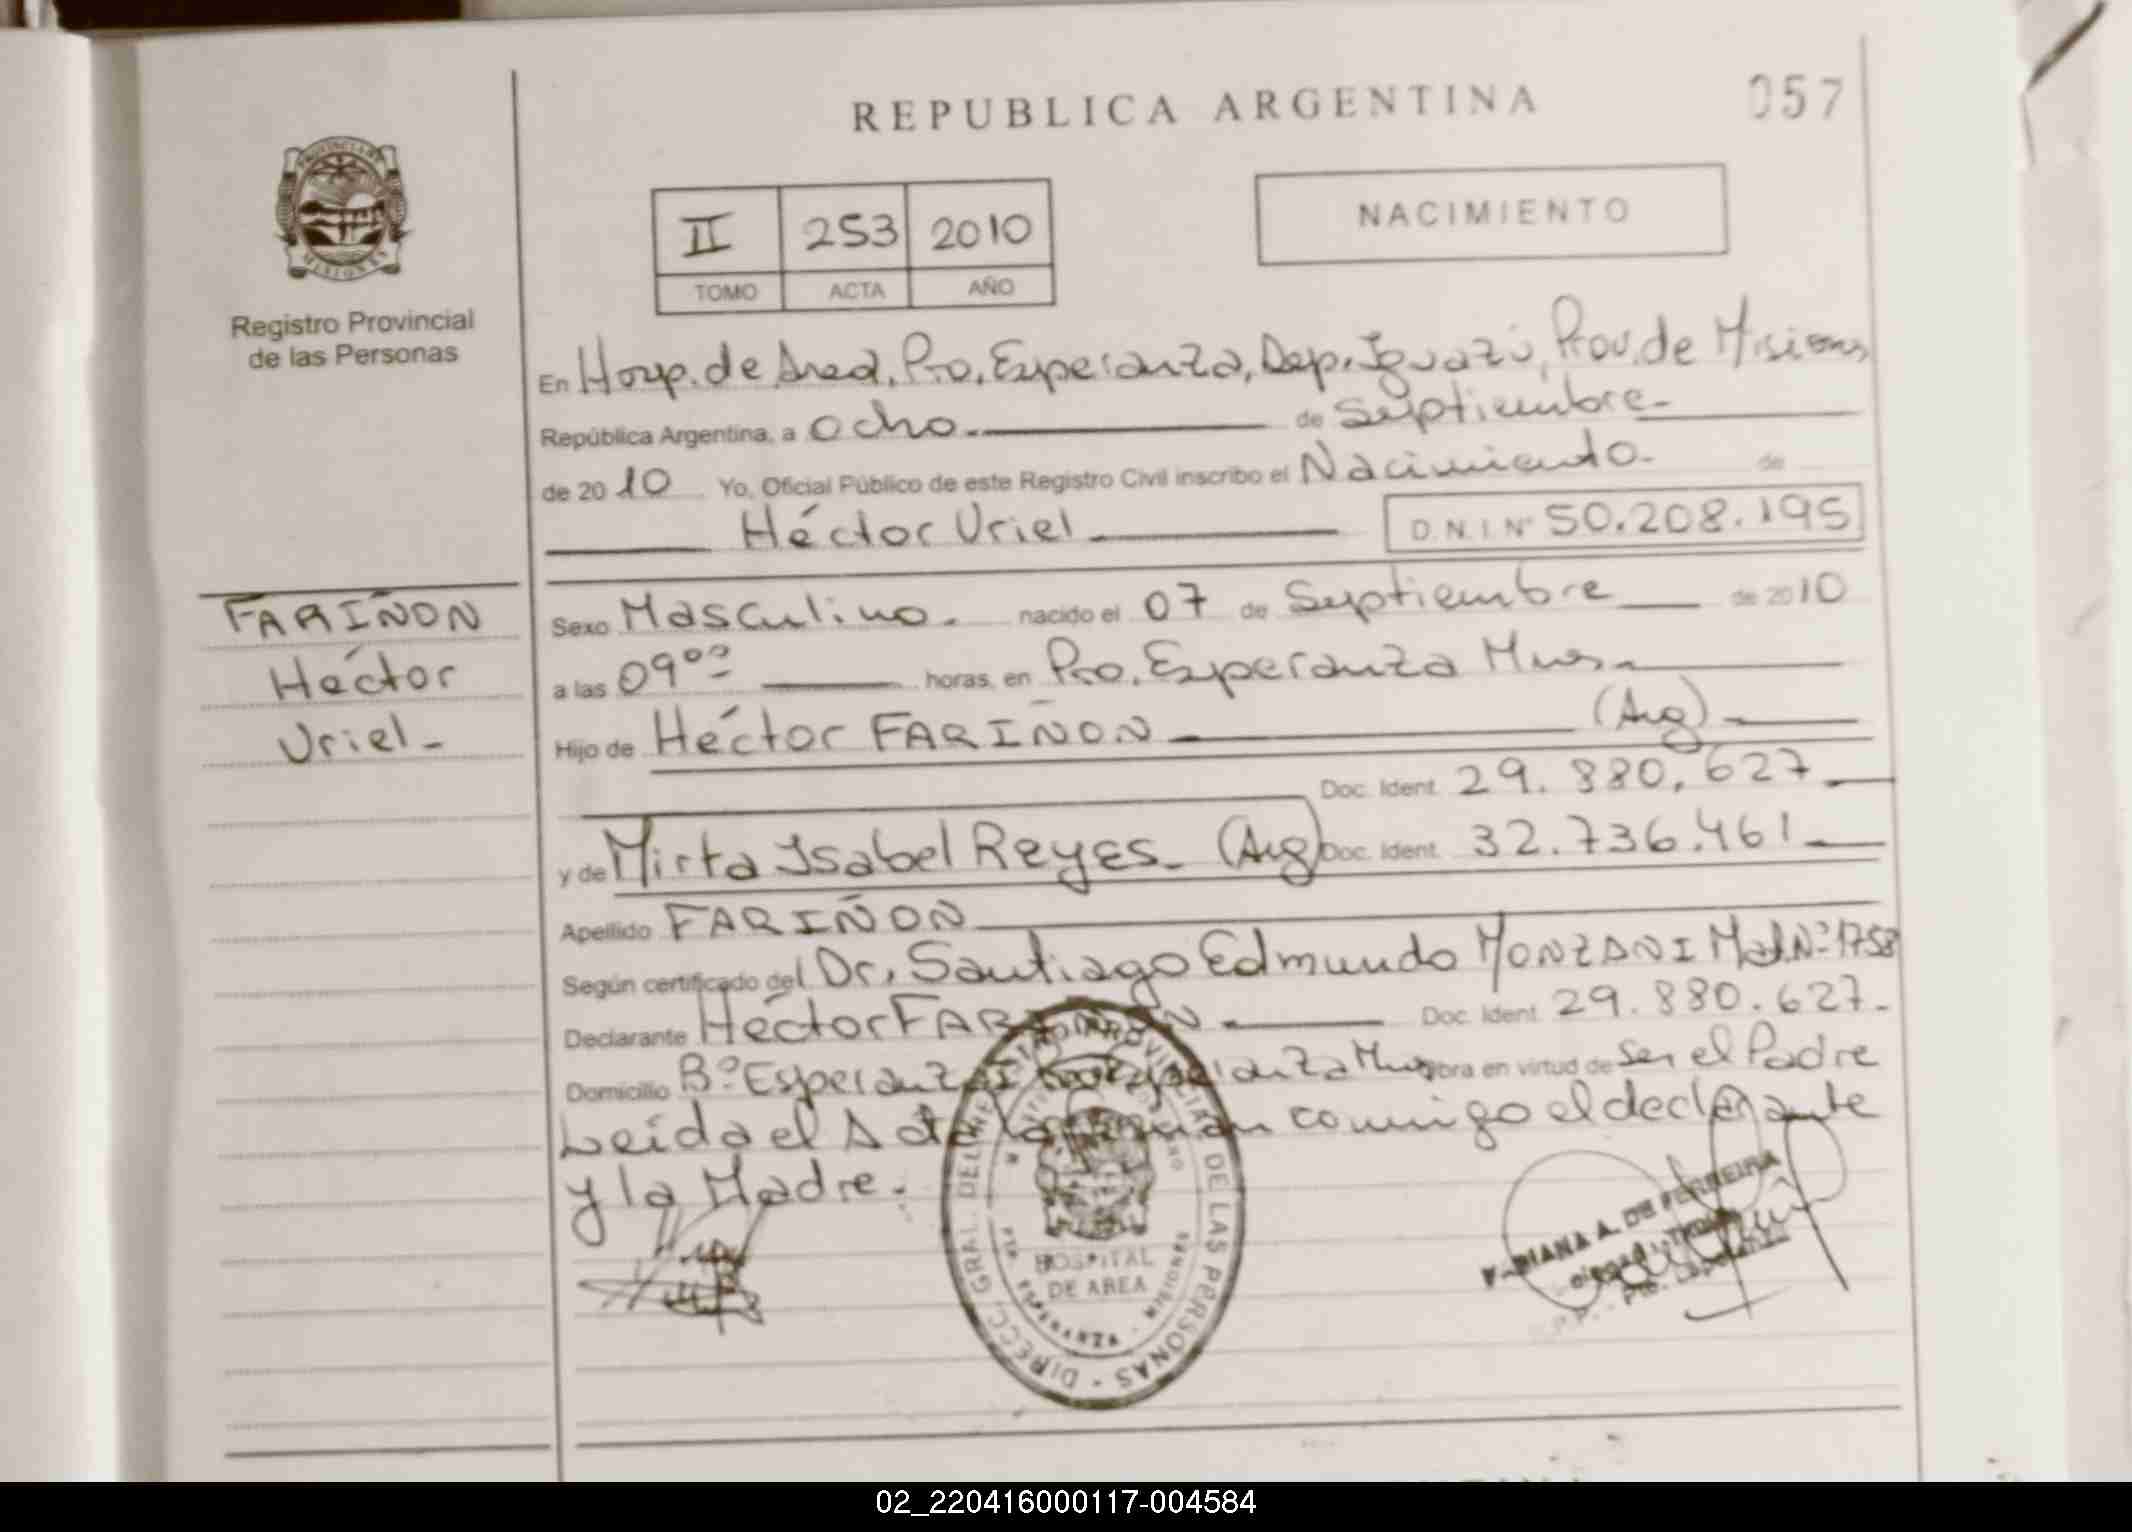 REPUBLICA ARGENTINA
057
PROVINCIA DE
MISIONES
Registro Provincial
de las Personas
II 253 2010
TOMO ACTA AÑO
NACIMIENTO
En Hosp. de Area, Pto. Esperanza, Dep. Iguazú, Prov. de Misiones
República Argentina, a ocho.- de Septiembre-
de 2010 Yo, Oficial Público de este Registro Civil inscribo el Nacimiento- de
Héctor Uriel - D.N.I. N° 50.208.195
FARIÑON
Héctor
Uriel-
Sexo Masculino. nacido el 07 de Septiembre de 2010
a las 09⁰⁰ horas, en Pto. Esperanza Mnes.-
Hijo de Héctor FARIÑON - (Arg)-
Doc. Ident. 29.880.627-
y de Mirta Isabel Reyes- (Arg) Doc. Ident. 32.736.461-
Apellido FARIÑON
Según certificado del Dr. Santiago Edmundo MONZANI Mat. N° 1758
Declarante Héctor FARIÑON - Doc. Ident. 29.880.627-
Domicilio B° Esperanza Mnes obra en virtud de ser el Padre
Leída el Acta la firman conmigo el declarante
y la Madre.
DIRECC. GRAL. DEL REGISTRO PROVINCIAL DE LAS PERSONAS
HOSPITAL
DE AREA
PTO. ESPERANZA - MISIONES
DIANA A. DE FERREIRA
02_220416000117-004584